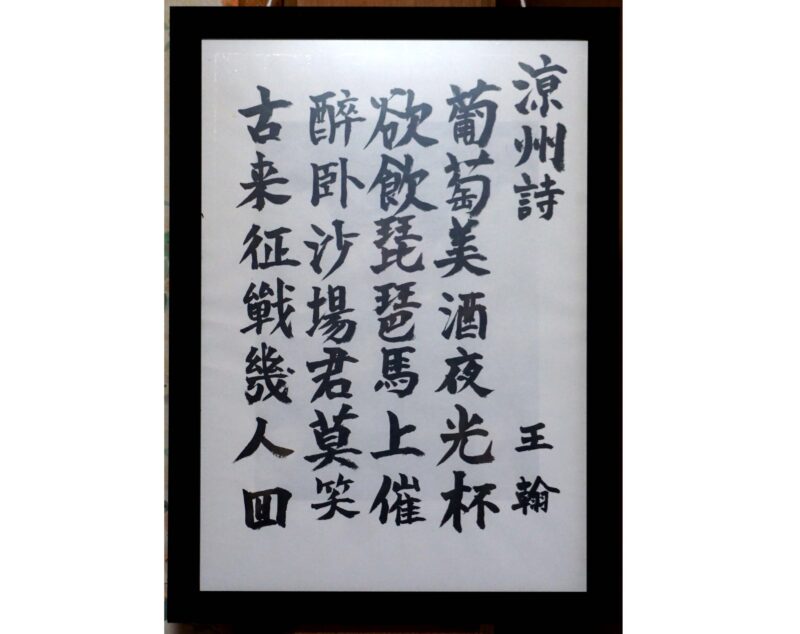 涼州詩 王翰
葡萄美酒夜光杯
欲飲琵琶馬上催
醉卧沙場君莫笑
古来征戰幾人回